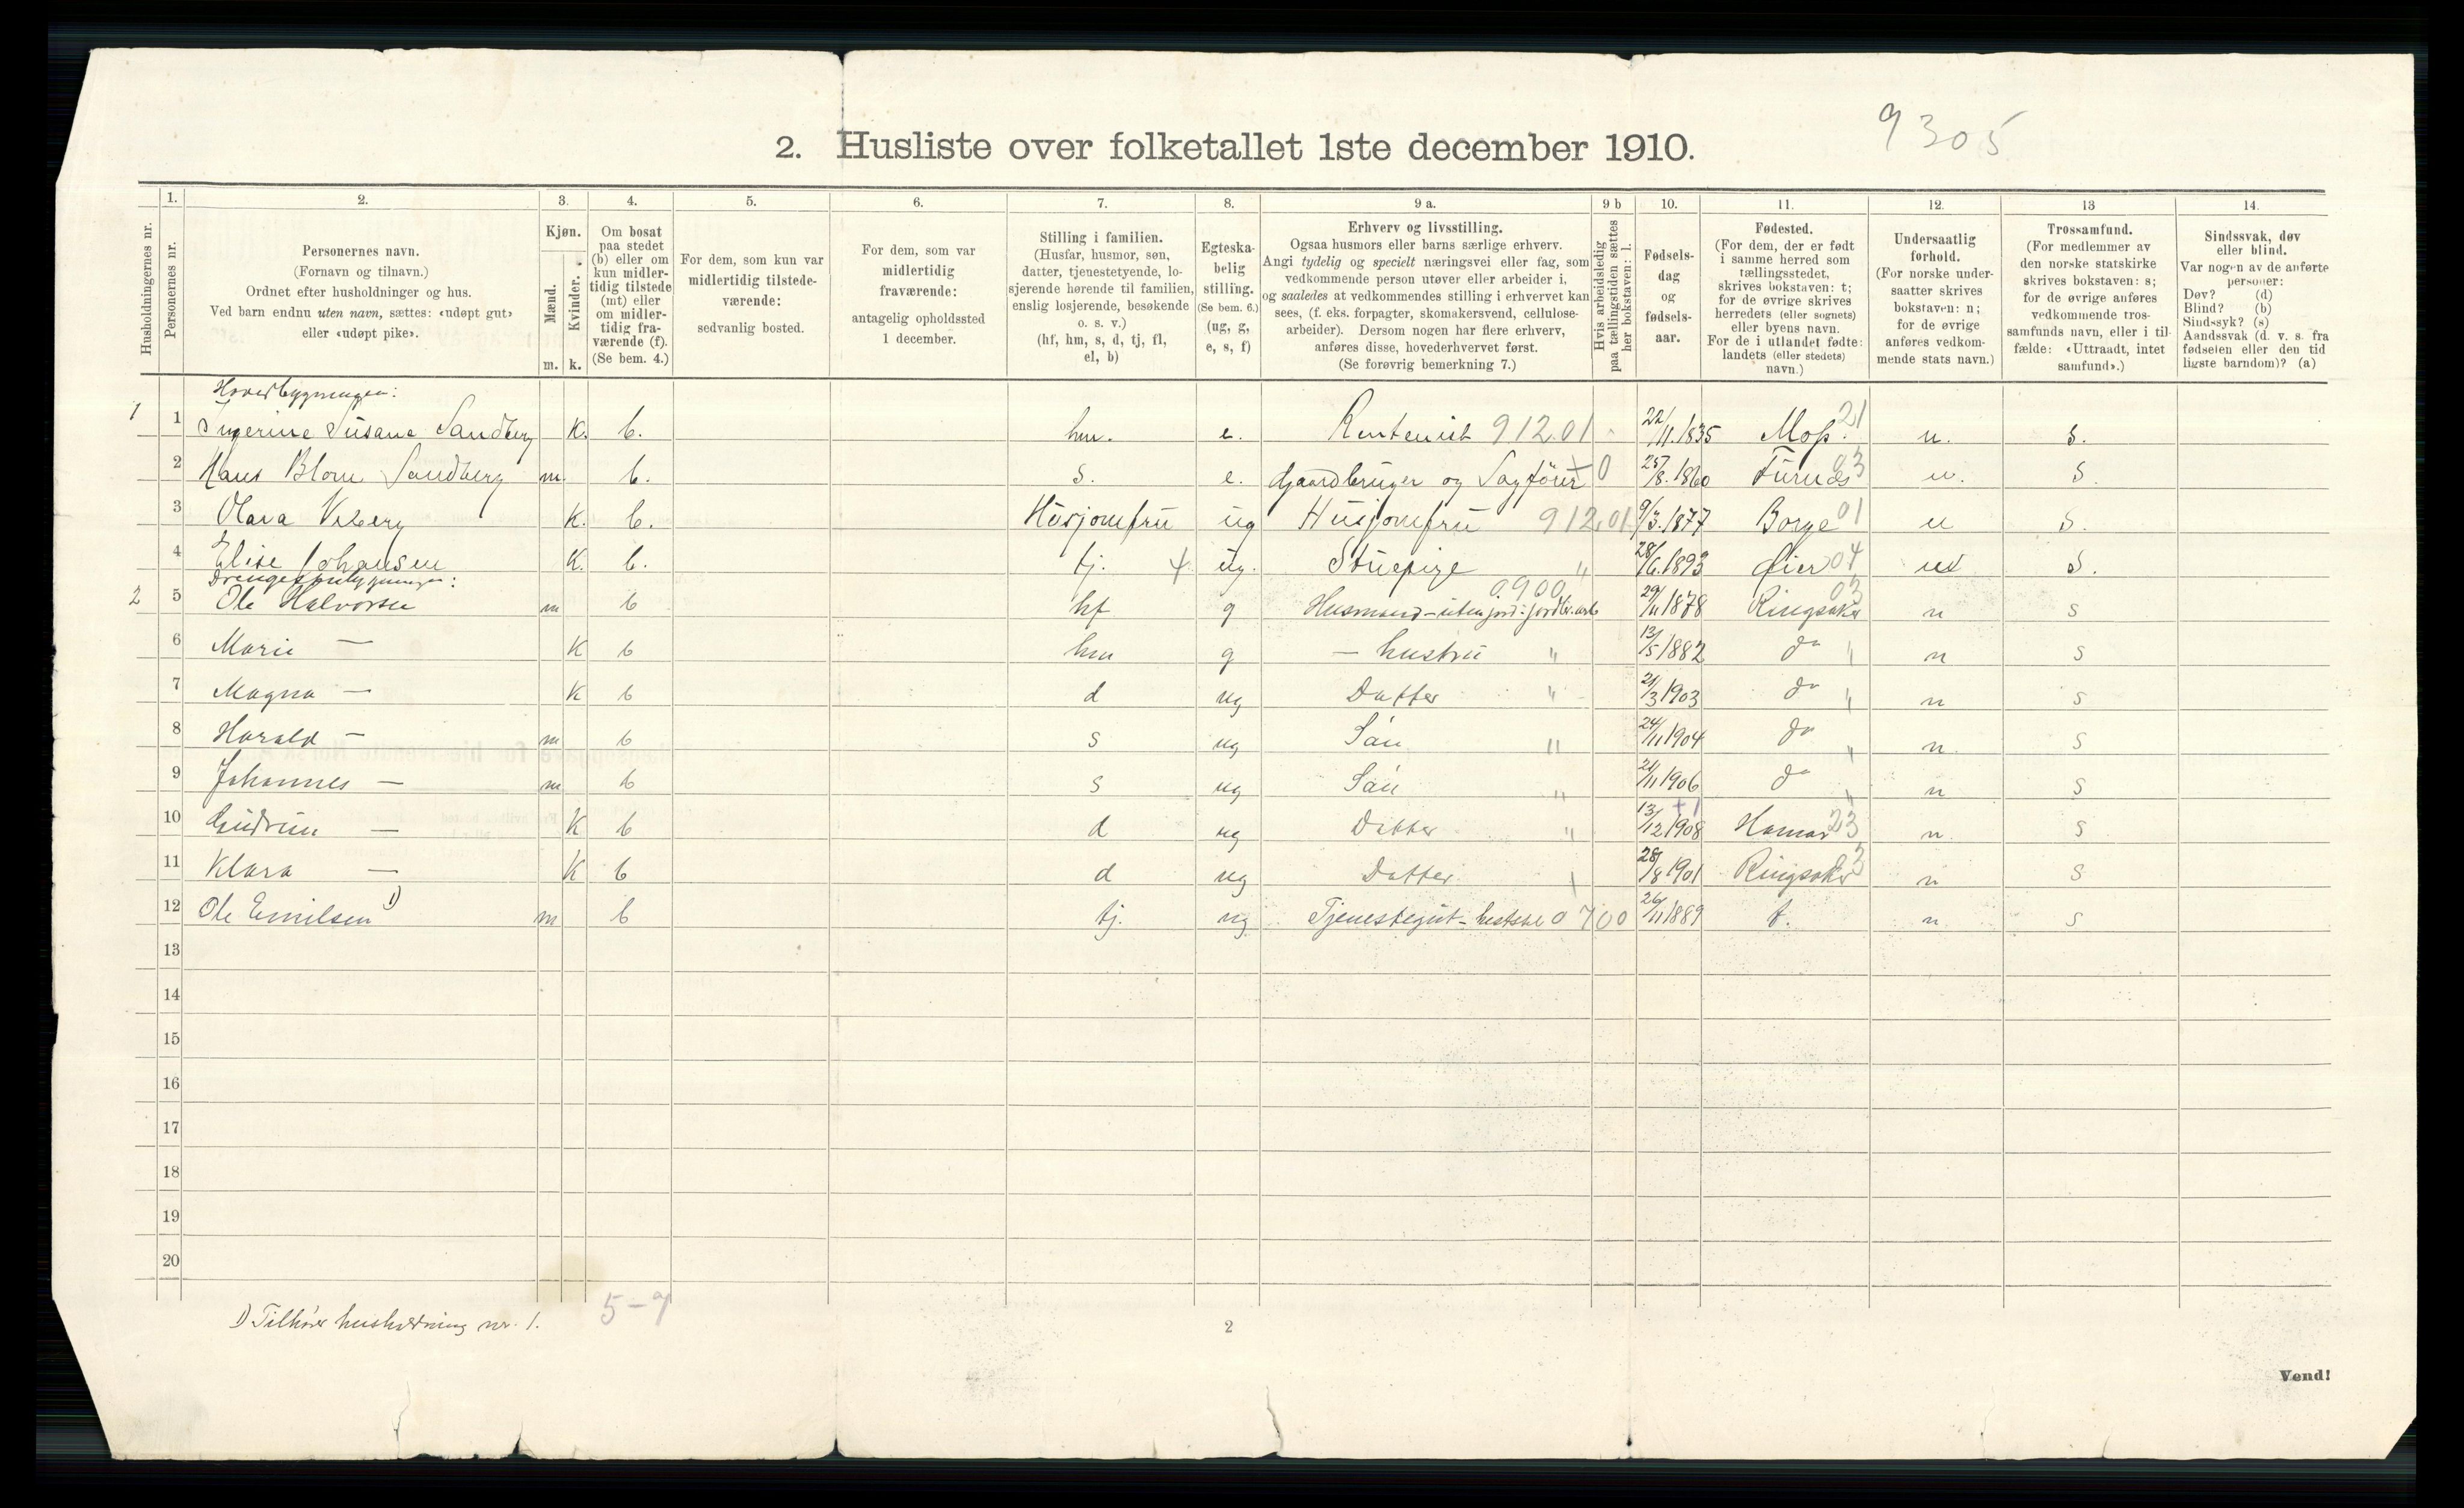 9305
2. Husliste over folketallet 1ste december 1910.
Husholdningernes nr.
1. Personernes nr.
2. Personernes navn.
(Fornavn og tilnavn.)
Ordnet efter husholdninger og hus.
Ved barn endnu uten navn, sættes: «udøpt gut»
eller «udøpt pike».
3. Kjøn.
Mænd. Kvinder.
m. k.
4. Om bosat
paa stedet
(b) eller om
kun midler-
tidig tilstede
(mt) eller
om midler-
tidig fra-
værende (f).
(Se bem. 4.)
5. For dem, som kun var
midlertidig tilstede-
værende:
sedvanlig bosted.
6. For dem, som var
midlertidig
fraværende:
antagelig opholdssted
1 december.
7. Stilling i familien.
(Husfar, husmor, søn,
datter, tjenestetyende, lo-
sjerende hørende til familien,
enslig losjerende, besøkende
o. s. v.)
(hf, hm, s, d, tj, fl,
el, b)
8. Egteska-
belig
stilling.
(Se bem. 6.)
(ug, g,
e, s, f)
9 a. Erhverv og livsstilling.
Ogsaa husmors eller barns særlige erhverv.
Angi tydelig og specielt næringsvei eller fag, som
vedkommende person utøver eller arbeider i,
og saaledes at vedkommendes stilling i erhvervet kan
sees, (f. eks. forpagter, skomakersvend, cellulose-
arbeider). Dersom nogen har flere erhverv,
anføres disse, hovederhvervet først.
(Se forøvrig bemerkning 7.)
9 b Hvis arbeidsledig
paa tællingstiden sættes
her bokstaven: l.
10. Fødsels-
dag
og
fødsels-
aar.
11. Fødested.
(For dem, der er født
i samme herred som
tællingsstedet,
skrives bokstaven: t;
for de øvrige skrives
herredets (eller sognets)
eller byens navn.
For de i utlandet fødte:
landets (eller stedets)
navn.)
12. Undersaatlig
forhold.
(For norske under-
saatter skrives
bokstaven: n;
for de øvrige
anføres vedkom-
mende stats navn.)
13 Trossamfund.
(For medlemmer av
den norske statskirke
skrives bokstaven: s;
for de øvrige anføres
vedkommende tros-
samfunds navn, eller i til-
fælde: «Uttraadt, intet
samfund».)
14. Sindssvak, døv
eller blind.
Var nogen av de anførte
personer:
Døv? (d)
Blind? (b)
Sindssyk? (s)
Aandssvak (d. v. s. fra
fødselen eller den tid
ligste barndom)? (a)
Hovedbygningen:
1 1 Ingerine Susane Sandberg K. b. hm. e. Rentenist 912.01 22/11.1835 Moss. 21 n. s.
2 Hans Blom Sandberg m. b. s. e. Gaardbruger og Sagfører 0 25/8.1860 Furnes 03 n. s.
3 Olava Viberg K. b. Husjomfru ug Husjomfru 912.01 9/3.1877 Borge 01 n s.
4 Elise Johansen K. b. tj. 4 ug. Stuepige " 28/6.1893 Øier 04 n s.
Drengestubygningen:
2 5 Ole Halvorsen m b hf g Husmand-uten jord: jordbr.arb 0900 29/11 1878 Ringsaker 03 n s
6 Marie — K b hm g — hustru " 13/5 1882 do " n s
7 Magna — K b d ug Datter " 21/3 1903 do " n s
8 Harald — m b s ug Søn " 24/11 1904 do " n. s
9 Johannes — m b s ug Søn " 21/11 1906 do " n s
10 Gudrun — K b d ug Datter " 13/12 1908 Hamar 23 n. s
11 Klara — K b d ug Datter 28/8 1901 Ringsaker 03 n s
12 Ole Emilsen 1) m b tj. ug Tjenestegut - heststel 0700 26/11 1889 t. n s
13
14
15
16
17
18
19
20
1) Tilhører husholdning nr. 1.
5-7
2
Vend!